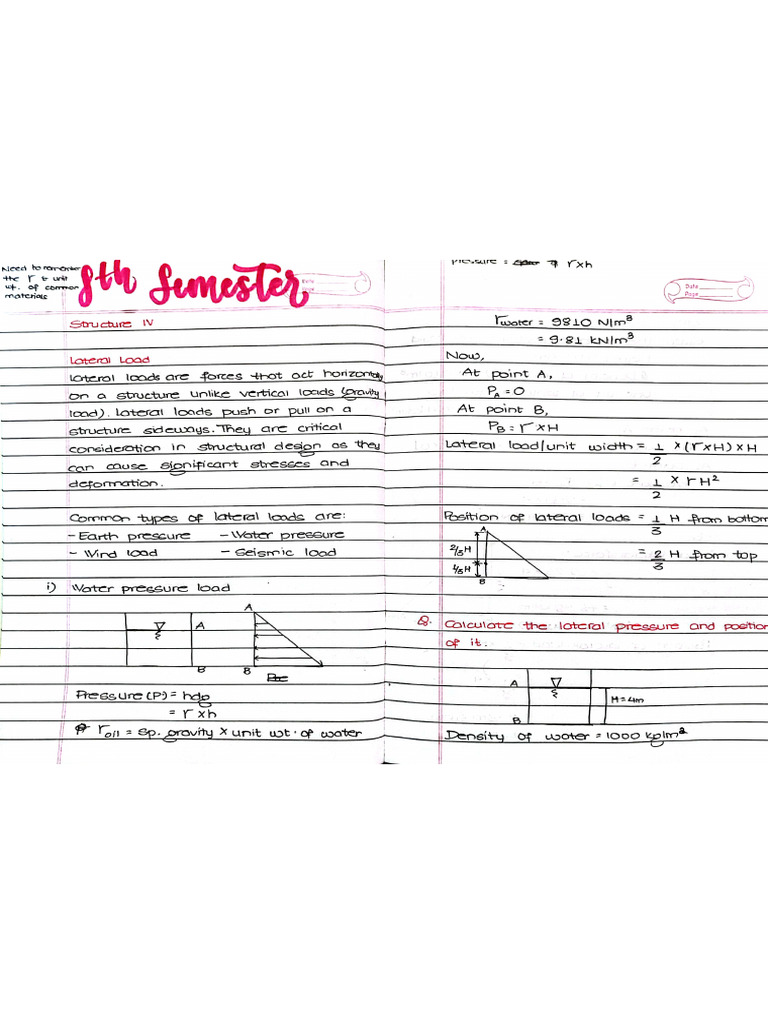 Need to remember
the r & unit
wt. of common
materials
8th Semester
Date
Page
Structure IV
Lateral Load
Lateral loads are forces that act horizontally
on a structure unlike vertical loads (gravity
load). Lateral loads push or pull on a
structure sideways. They are critical
consideration in structural design as they
can cause significant stresses and
deformation.
Common types of lateral loads are:
- Earth pressure - Water pressure
- Wind load - Seismic load
i) Water pressure load
A
A
B
B
Pressure (P) = hdg
= r x h
r oil = sp. gravity x unit wt. of water
pressure = r x h
Date
Page
r water = 9810 N/m³
= 9.81 kN/m³
Now,
At point A,
P_A = 0
At point B,
P_B = r x H
Lateral load/unit width = 1/2 x (r x H) x H
= 1/2 x r H²
Position of lateral loads = 1/3 H from bottom
= 2/3 H from top
A
2/3 H
1/3 H
B
Q. Calculate the lateral pressure and position
of it.
A
H = 4m
B
Density of water = 1000 kg/m³